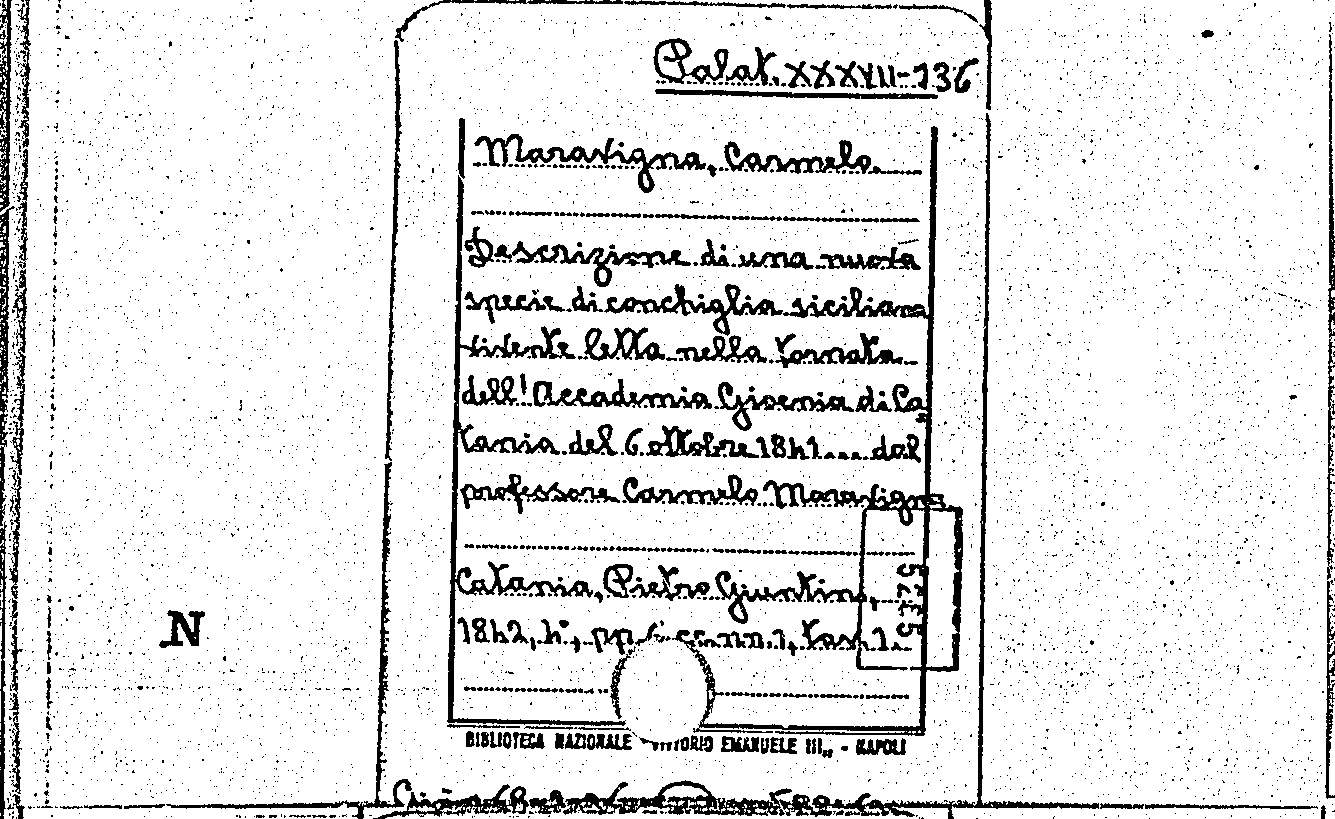 Palat. XXXVII-136
Maravigna, Carmelo.
Descrizione di una nuova
specie di conchiglia siciliana
vivente letta nella tornata
dell'Accademia Gioenia di Ca=
tania del 6 ottobre 1841.... dal
professore Carmelo Maravigna
Catania, Pietro Giuntini,
1842, 4°, pp. 6 cc.nn.1, tav.1.
5735
N
BIBLIOTECA NAZIONALE "VITTORIO EMANUELE III„ - NAPOLI